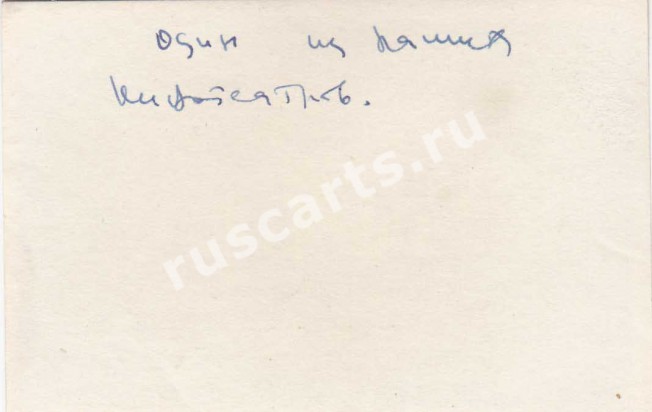 Один из наших
кинотеатров.
ruscarts.ru